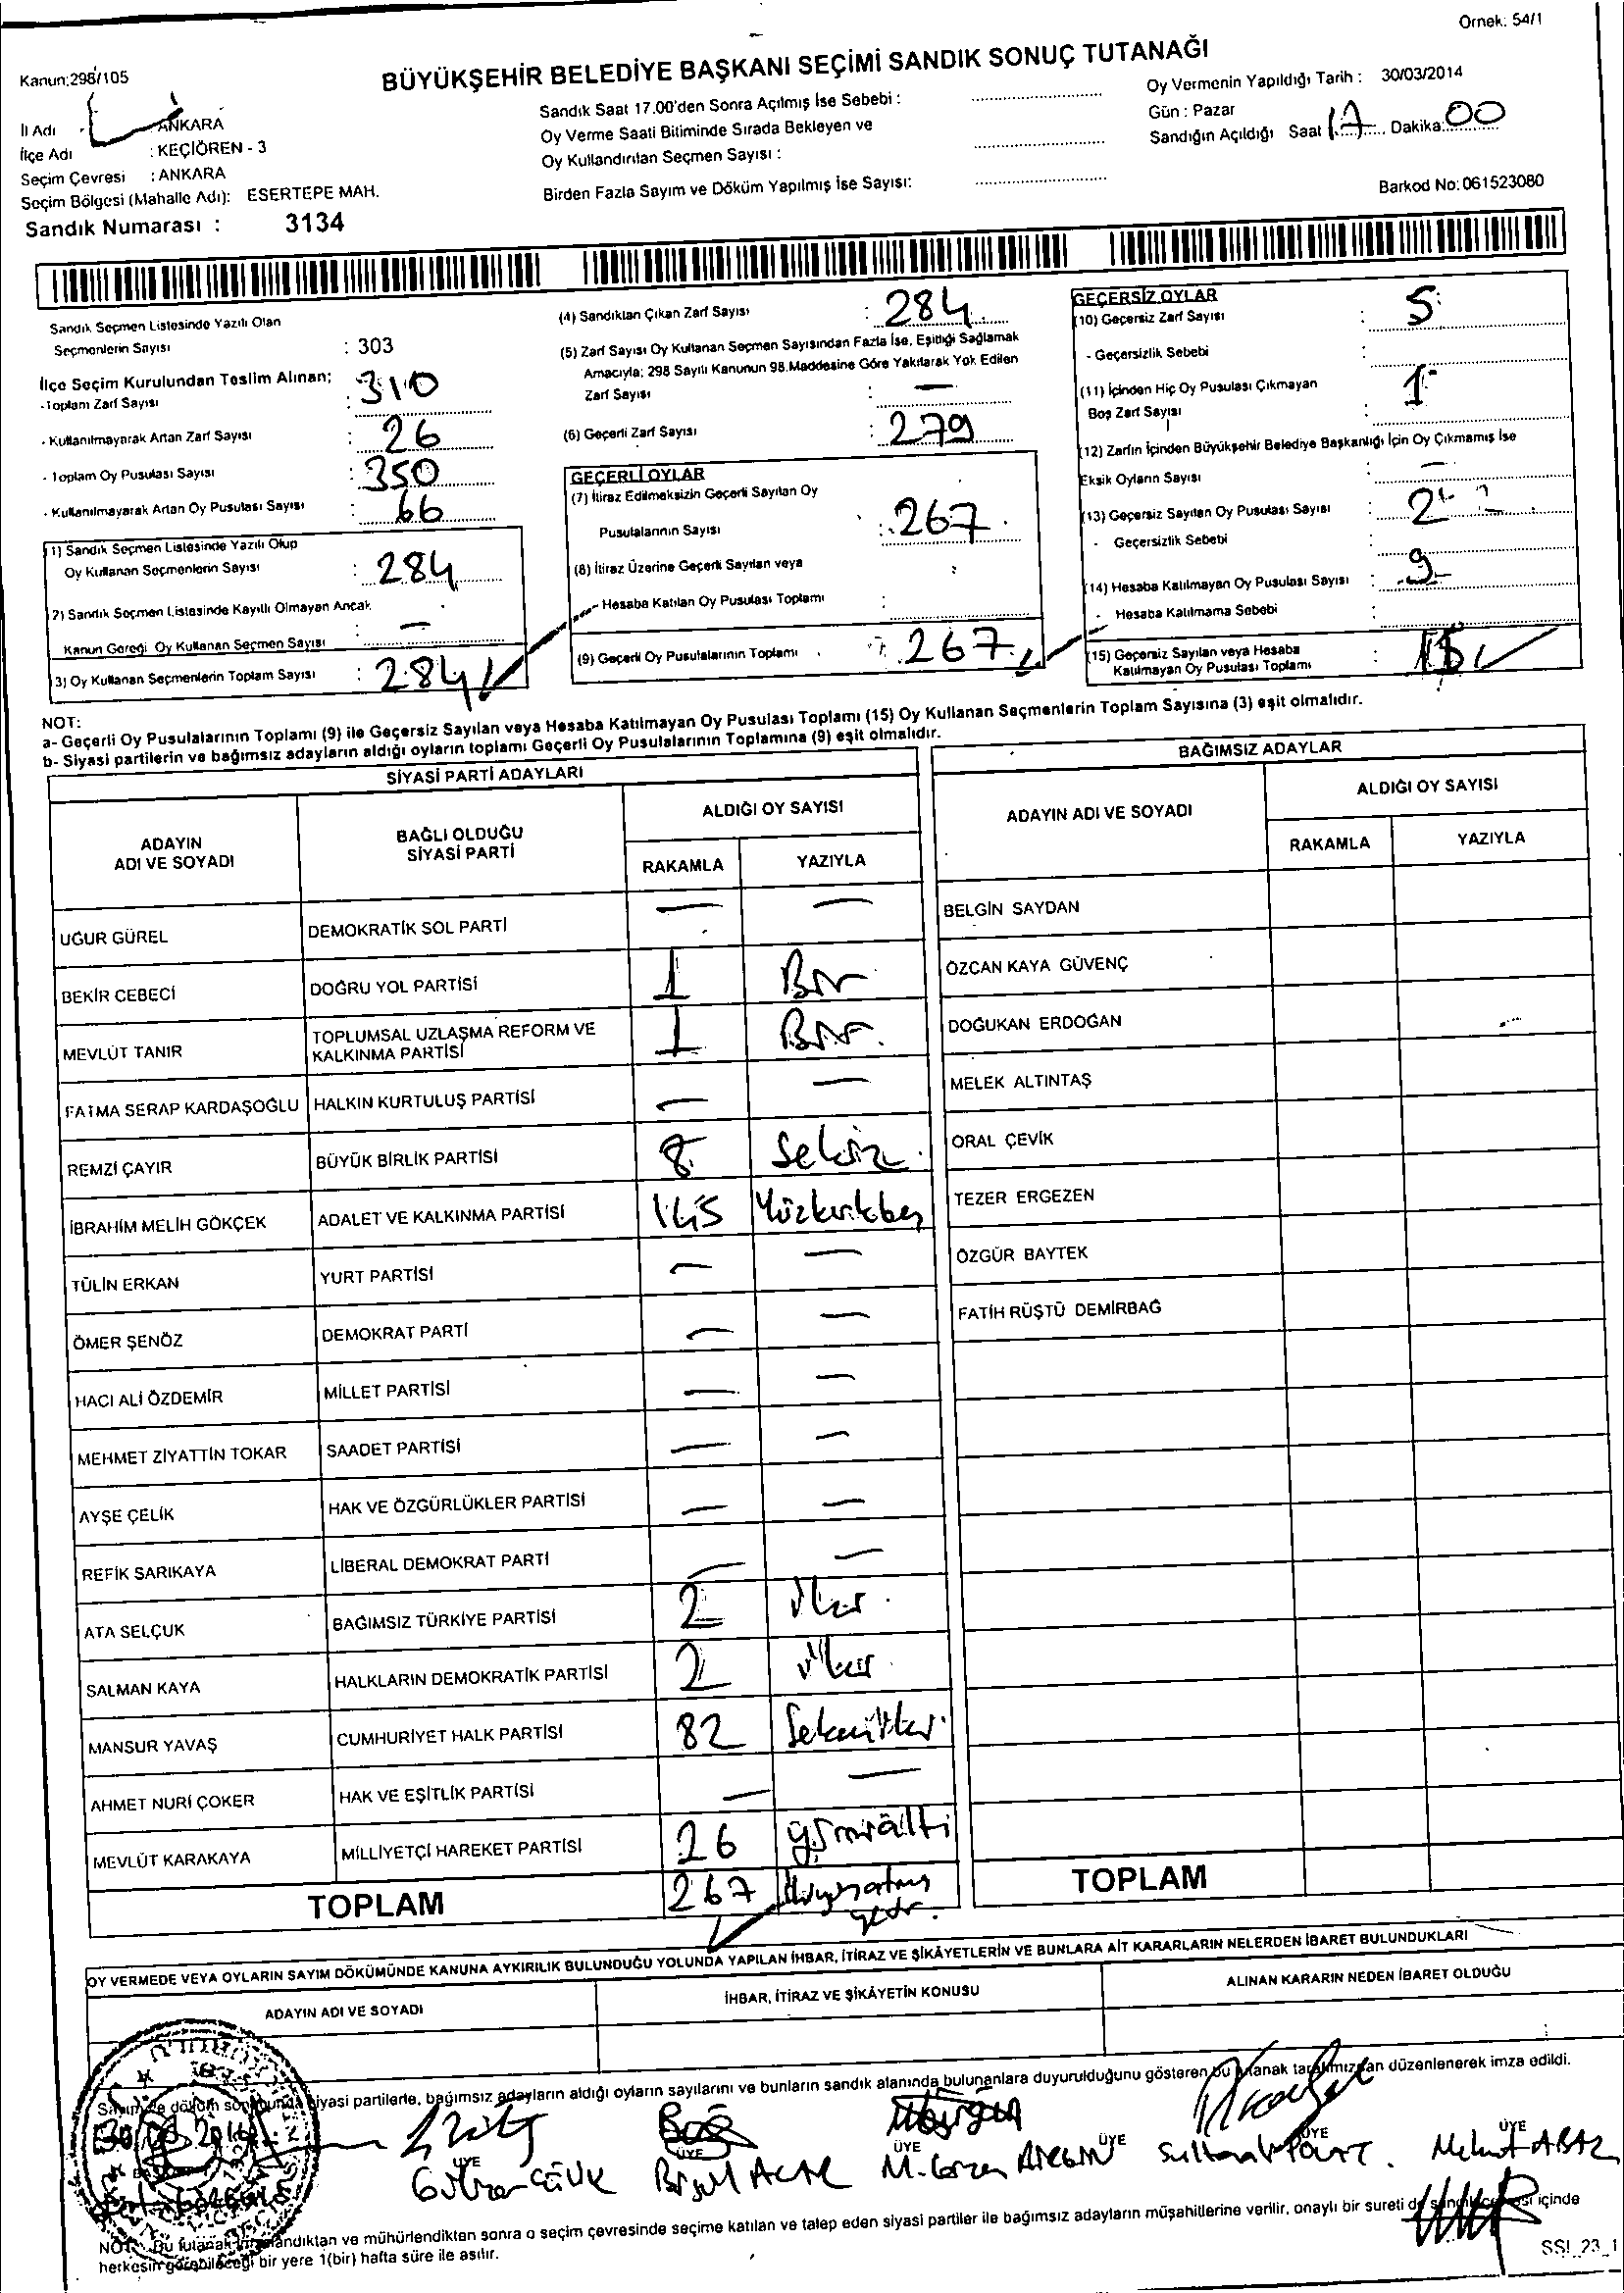 Örnek: 54/1
BÜYÜKŞEHİR BELEDİYE BAŞKANI SEÇİMİ SANDIK SONUÇ TUTANAĞI
Kanun:298/105
İl Adı : ANKARA
İlçe Adı : KEÇİÖREN - 3
Seçim Çevresi : ANKARA
Seçim Bölgesi (Mahalle Adı): ESERTEPE MAH.
Sandık Numarası : 3134
Sandık Saat 17.00'den Sonra Açılmış İse Sebebi :
Oy Verme Saati Bitiminde Sırada Bekleyen ve
Oy Kullandırılan Seçmen Sayısı :
Birden Fazla Sayım ve Döküm Yapılmış İse Sayısı:
Oy Vermenin Yapıldığı Tarih : 30/03/2014
Gün : Pazar
Sandığın Açıldığı Saat 17 Dakika 00
Barkod No: 061523080
Sandık Seçmen Listesinde Yazılı Olan
Seçmenlerin Sayısı : 303
İlçe Seçim Kurulundan Teslim Alınan:
-Toplam Zarf Sayısı : 310
- Kullanılmayarak Artan Zarf Sayısı : 26
- Toplam Oy Pusulası Sayısı : 350
- Kullanılmayarak Artan Oy Pusulası Sayısı : 66
(1) Sandık Seçmen Listesinde Yazılı Olup
Oy Kullanan Seçmenlerin Sayısı : 284
(2) Sandık Seçmen Listesinde Kayıtlı Olmayan Ancak
Kanun Gereği Oy Kullanan Seçmen Sayısı : —
(3) Oy Kullanan Seçmenlerin Toplam Sayısı : 284
(4) Sandıktan Çıkan Zarf Sayısı : 284
(5) Zarf Sayısı Oy Kullanan Seçmen Sayısından Fazla İse, Eşitliği Sağlamak
Amacıyla; 298 Sayılı Kanunun 98.Maddesine Göre Yakılarak Yok Edilen
Zarf Sayısı : —
(6) Geçerli Zarf Sayısı : 279
GEÇERLİ OYLAR
(7) İtiraz Edilmeksizin Geçerli Sayılan Oy
Pusulalarının Sayısı : 267
(8) İtiraz Üzerine Geçerli Sayılan veya
- Hesaba Katılan Oy Pusulası Toplamı :
(9) Geçerli Oy Pusulalarının Toplamı : 267
GEÇERSİZ OYLAR
(10) Geçersiz Zarf Sayısı : 5
- Geçersizlik Sebebi :
(11) İçinden Hiç Oy Pusulası Çıkmayan
Boş Zarf Sayısı : 1
(12) Zarfın İçinden Büyükşehir Belediye Başkanlığı İçin Oy Çıkmamış İse
Eksik Oyların Sayısı : —
(13) Geçersiz Sayılan Oy Pusulası Sayısı : 2
- Geçersizlik Sebebi :
(14) Hesaba Katılmayan Oy Pusulası Sayısı : 9
- Hesaba Katılmama Sebebi :
(15) Geçersiz Sayılan veya Hesaba
Katılmayan Oy Pusulası Toplamı :
NOT:
a- Geçerli Oy Pusulalarının Toplamı (9) ile Geçersiz Sayılan veya Hesaba Katılmayan Oy Pusulası Toplamı (15) Oy Kullanan Seçmenlerin Toplam Sayısına (3) eşit olmalıdır.
b- Siyasi partilerin ve bağımsız adayların aldığı oyların toplamı Geçerli Oy Pusulalarının Toplamına (9) eşit olmalıdır.
SİYASİ PARTİ ADAYLARI
ADAYIN ADI VE SOYADI BAĞLI OLDUĞU SİYASİ PARTİ ALDIĞI OY SAYISI
RAKAMLA YAZIYLA
UĞUR GÜREL DEMOKRATİK SOL PARTİ — —
BEKİR CEBECİ DOĞRU YOL PARTİSİ 1 Bir
MEVLÜT TANIR TOPLUMSAL UZLAŞMA REFORM VE KALKINMA PARTİSİ 1 Bir
FATMA SERAP KARDAŞOĞLU HALKIN KURTULUŞ PARTİSİ — —
REMZİ ÇAYIR BÜYÜK BİRLİK PARTİSİ 8 Sekiz
İBRAHİM MELİH GÖKÇEK ADALET VE KALKINMA PARTİSİ 145 Yüzkırkbeş
TÜLİN ERKAN YURT PARTİSİ — —
ÖMER ŞENÖZ DEMOKRAT PARTİ — —
HACI ALİ ÖZDEMİR MİLLET PARTİSİ — —
MEHMET ZİYATTİN TOKAR SAADET PARTİSİ — —
AYŞE ÇELİK HAK VE ÖZGÜRLÜKLER PARTİSİ — —
REFİK SARIKAYA LİBERAL DEMOKRAT PARTİ — —
ATA SELÇUK BAĞIMSIZ TÜRKİYE PARTİSİ 2 iki
SALMAN KAYA HALKLARIN DEMOKRATİK PARTİSİ 2 iki
MANSUR YAVAŞ CUMHURİYET HALK PARTİSİ 82 Sekseniki
AHMET NURİ ÇOKER HAK VE EŞİTLİK PARTİSİ — —
MEVLÜT KARAKAYA MİLLİYETÇİ HAREKET PARTİSİ 26 yirmialtı
TOPLAM 267 ikiyüzaltmış yedi
BAĞIMSIZ ADAYLAR
ADAYIN ADI VE SOYADI ALDIĞI OY SAYISI
RAKAMLA YAZIYLA
BELGİN SAYDAN
ÖZCAN KAYA GÜVENÇ
DOĞUKAN ERDOĞAN
MELEK ALTINTAŞ
ORAL ÇEVİK
TEZER ERGEZEN
ÖZGÜR BAYTEK
FATİH RÜŞTÜ DEMİRBAĞ
TOPLAM
OY VERMEDE VEYA OYLARIN SAYIM DÖKÜMÜNDE KANUNA AYKIRILIK BULUNDUĞU YOLUNDA YAPILAN İHBAR, İTİRAZ VE ŞİKÂYETLERİN VE BUNLARA AİT KARARLARIN NELERDEN İBARET BULUNDUKLARI
ADAYIN ADI VE SOYADI İHBAR, İTİRAZ VE ŞİKÂYETİN KONUSU ALINAN KARARIN NEDEN İBARET OLDUĞU
Sayım ve döküm sonucunda siyasi partilerle, bağımsız adayların aldığı oyların sayılarını ve bunların sandık alanında bulunanlara duyurulduğunu gösteren bu tutanak tarafımızdan düzenlenerek imza edildi.
ÜYE ÜYE ÜYE ÜYE ÜYE ÜYE
NOT: Bu tutanak imzalandıktan ve mühürlendikten sonra o seçim çevresinde seçime katılan ve talep eden siyasi partiler ile bağımsız adayların müşahitlerine verilir, onaylı bir sureti de sandık çevresi içinde
herkesin görebileceği bir yere 1(bir) hafta süre ile asılır.
SSİ_23_1